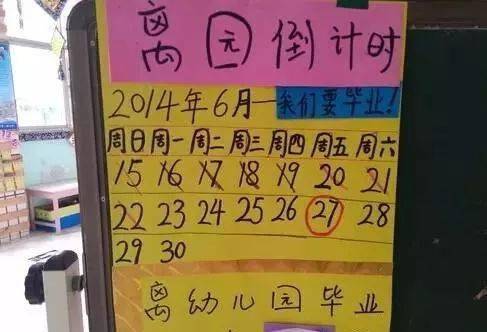 离园倒计时
2014年6月—我们要毕业!
周日周一周二周三周四周五周六
15 16 17 18 19 20 21
22 23 24 25 26 27 28
29 30
离幼儿园毕业